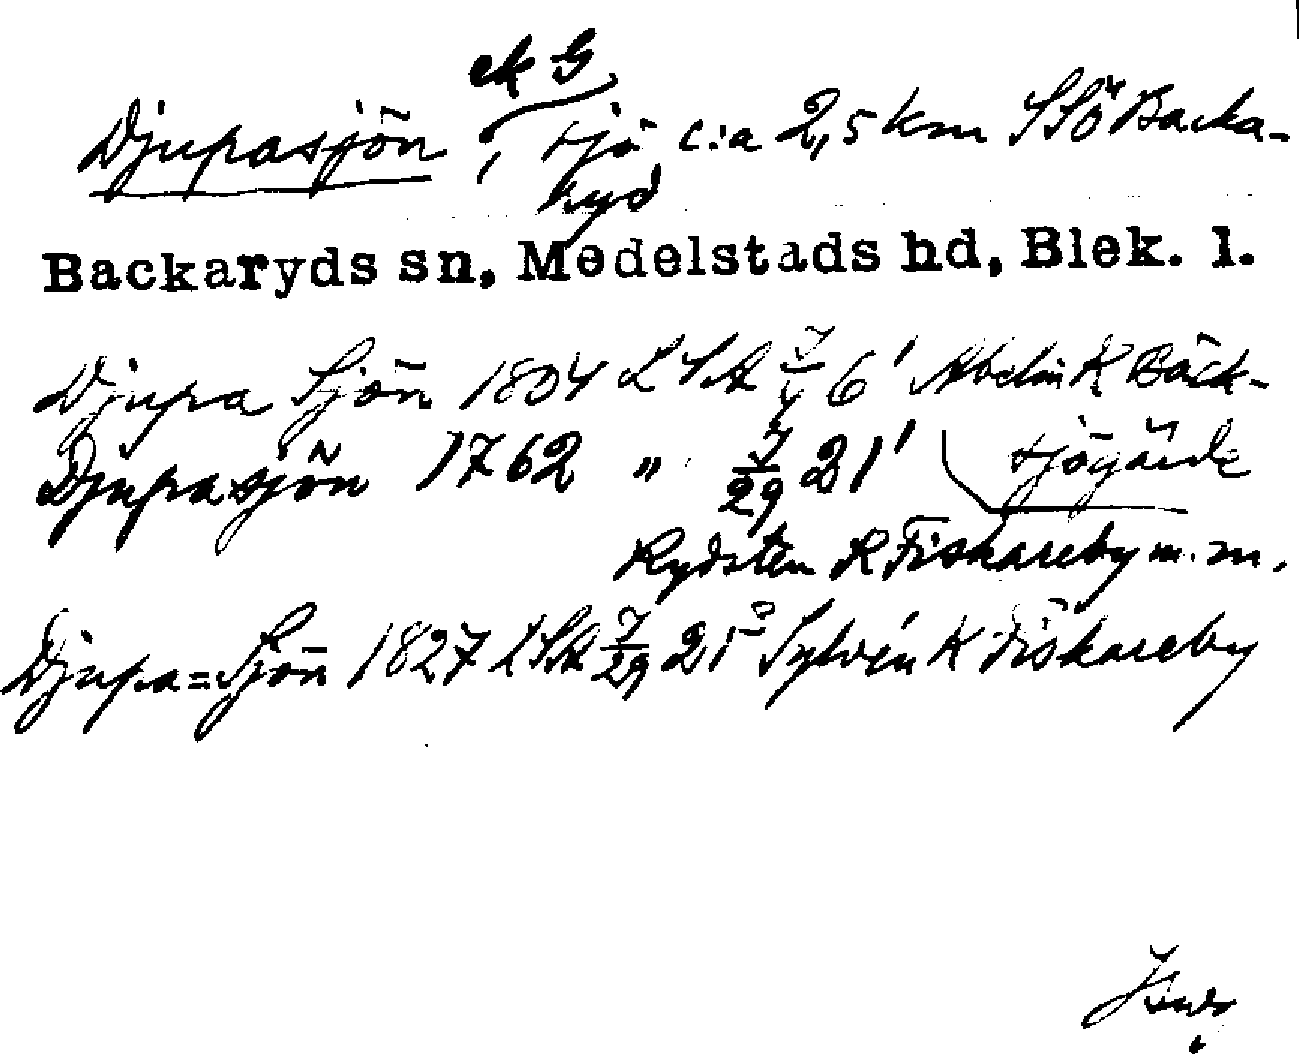 ek G
Djupasjön, sjö c:a 2,5 km SSÖ Backa-
ryd
Backaryds sn, Medelstads hd, Blek. l.
Djupa Sjön 1804 LSA 7/4 6¹ Abelin K Bäck-
Djupasjön 1762 " 7/29 21¹ sjögärde
Rydsten K Fiskareby m.m.
Djupa=Sjön 1827 LSA 7/29 21³ Sylvén K Fiskareby